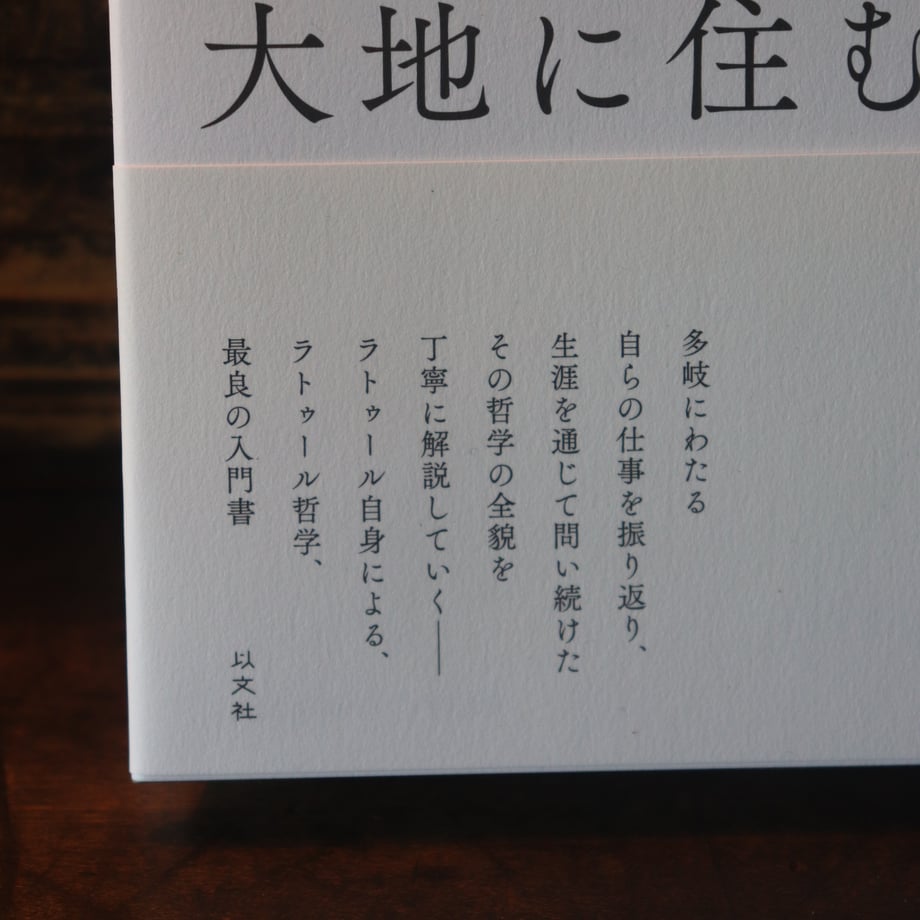 大地に住む
多岐にわたる
自らの仕事を振り返り、
生涯を通じて問い続けた
その哲学の全貌を
丁寧に解説していく——
ラトゥール自身による、
ラトゥール哲学、
最良の入門書
以文社